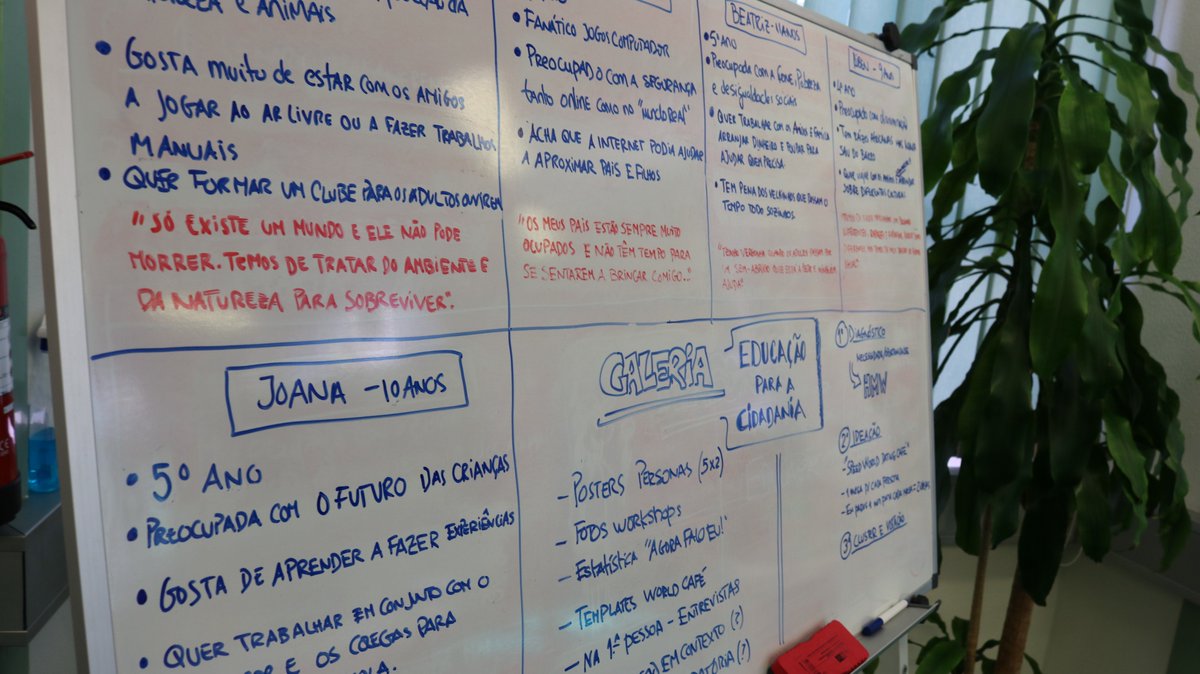 NATUREZA E ANIMAIS
• GOSTA MUITO DE ESTAR COM OS AMIGOS
A JOGAR AO AR LIVRE OU A FAZER TRABALHOS
MANUAIS
• QUER FORMAR UM CLUBE PARA OS ADULTOS OUVIREM
"SÓ EXISTE UM MUNDO E ELE NÃO PODE
MORRER. TEMOS DE TRATAR DO AMBIENTE E
DA NATUREZA PARA SOBREVIVER".
• FANÁTICO JOGOS COMPUTADOR
• PREOCUPADO COM A SEGURANÇA
tanto online como no "mundo real"
• ACHA QUE A INTERNET PODIA AJUDAR
A APROXIMAR PAIS E FILHOS
"OS MEUS PAIS ESTÃO SEMPRE MUITO
OCUPADOS E NÃO TÊM TEMPO PARA
SE SENTAREM A BRINCAR COMIGO..."
BEATRIZ - 11 ANOS
• 5º ANO
• Preocupada com a fome, pobreza
e desigualdades sociais
• QUER TRABALHAR COM OS AMIGOS E FAMÍLIA
ARRANJAR DINHEIRO E POUPAR PARA
AJUDAR QUEM PRECISA
• TEM PENA DOS VELHINHOS QUE PASSAM O
TEMPO TODO SOZINHOS
AJUDA"
4º ANO
Preocupado com discriminação
SOBRE DIFERENTES CULTURAS
JOANA - 10 ANOS
• 5º ANO
• PREOCUPADA COM O FUTURO DAS CRIANÇAS
• GOSTA DE APRENDER A FAZER EXPERIÊNCIAS
• QUER TRABALHAR EM CONJUNTO COM O
E OS COLEGAS PARA
GALERIA
EDUCAÇÃO
PARA A
CIDADANIA
- POSTERS PERSONAS (5x2)
- FOTOS WORKSHOPS
- ESTATÍSTICA "AGORA FALO EU!"
- TEMPLATES WORLD CAFÉ
- NA 1ª PESSOA - ENTREVISTAS
EM CONTEXTO (?)
(?)
1º DIAGNÓSTICO
HMW
2º IDEAÇÃO
"SPEED WORLD DATING CAFÉ"
3º CLUSTER E VOTAÇÃO